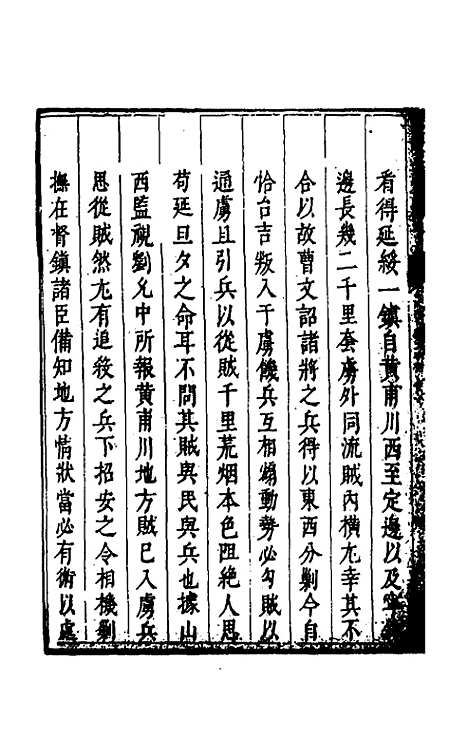 看得延綏一鎮自黃甫川西至定邊以及寧
邊長幾二千里套虜外同流賊內橫尢幸其不
合以故曹文詔諸將之兵得以東西分剿今自
恰台吉叛入干虜饑兵互相煽動勢必勾賊以
通虜且引兵以從賊千里荒烟本色阻絶人思
苟延旦夕之命耳不問其賊與民與兵也據山
西監視劉允中所報黃甫川地方賊已入虜兵
思從賊然尢有追殺之兵下招安之令相機剿
撫在督鎮諸臣備知地方情狀當必有術以處